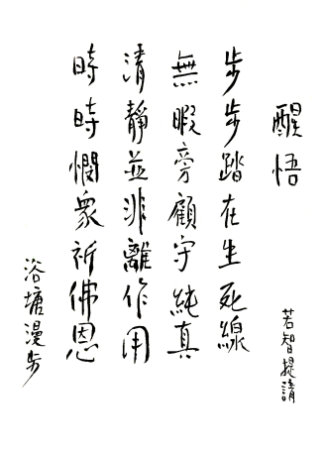 醒悟
若智提請
步步踏在生死線
無暇旁顧守純真
清靜並非離作用
時時憫衆祈佛恩
浴塘漫步